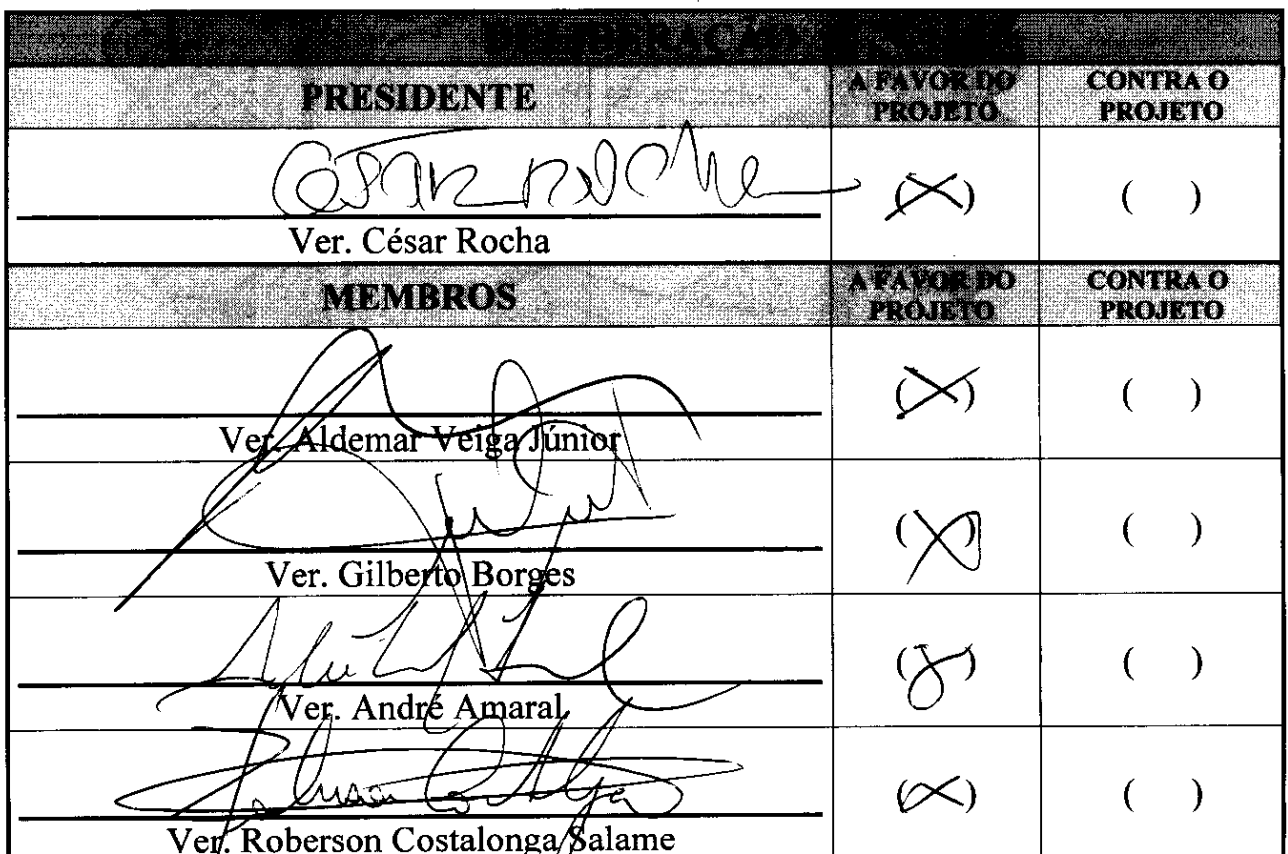 DELIBERAÇÃO
PRESIDENTE A FAVOR DO PROJETO CONTRA O PROJETO
César Rocha (X) ( )
Ver. César Rocha
MEMBROS A FAVOR DO PROJETO CONTRA O PROJETO
(X) ( )
Ver. Aldemar Veiga Júnior
(X) ( )
Ver. Gilberto Borges
(X) ( )
Ver. André Amaral
(X) ( )
Ver. Roberson Costalonga Salame